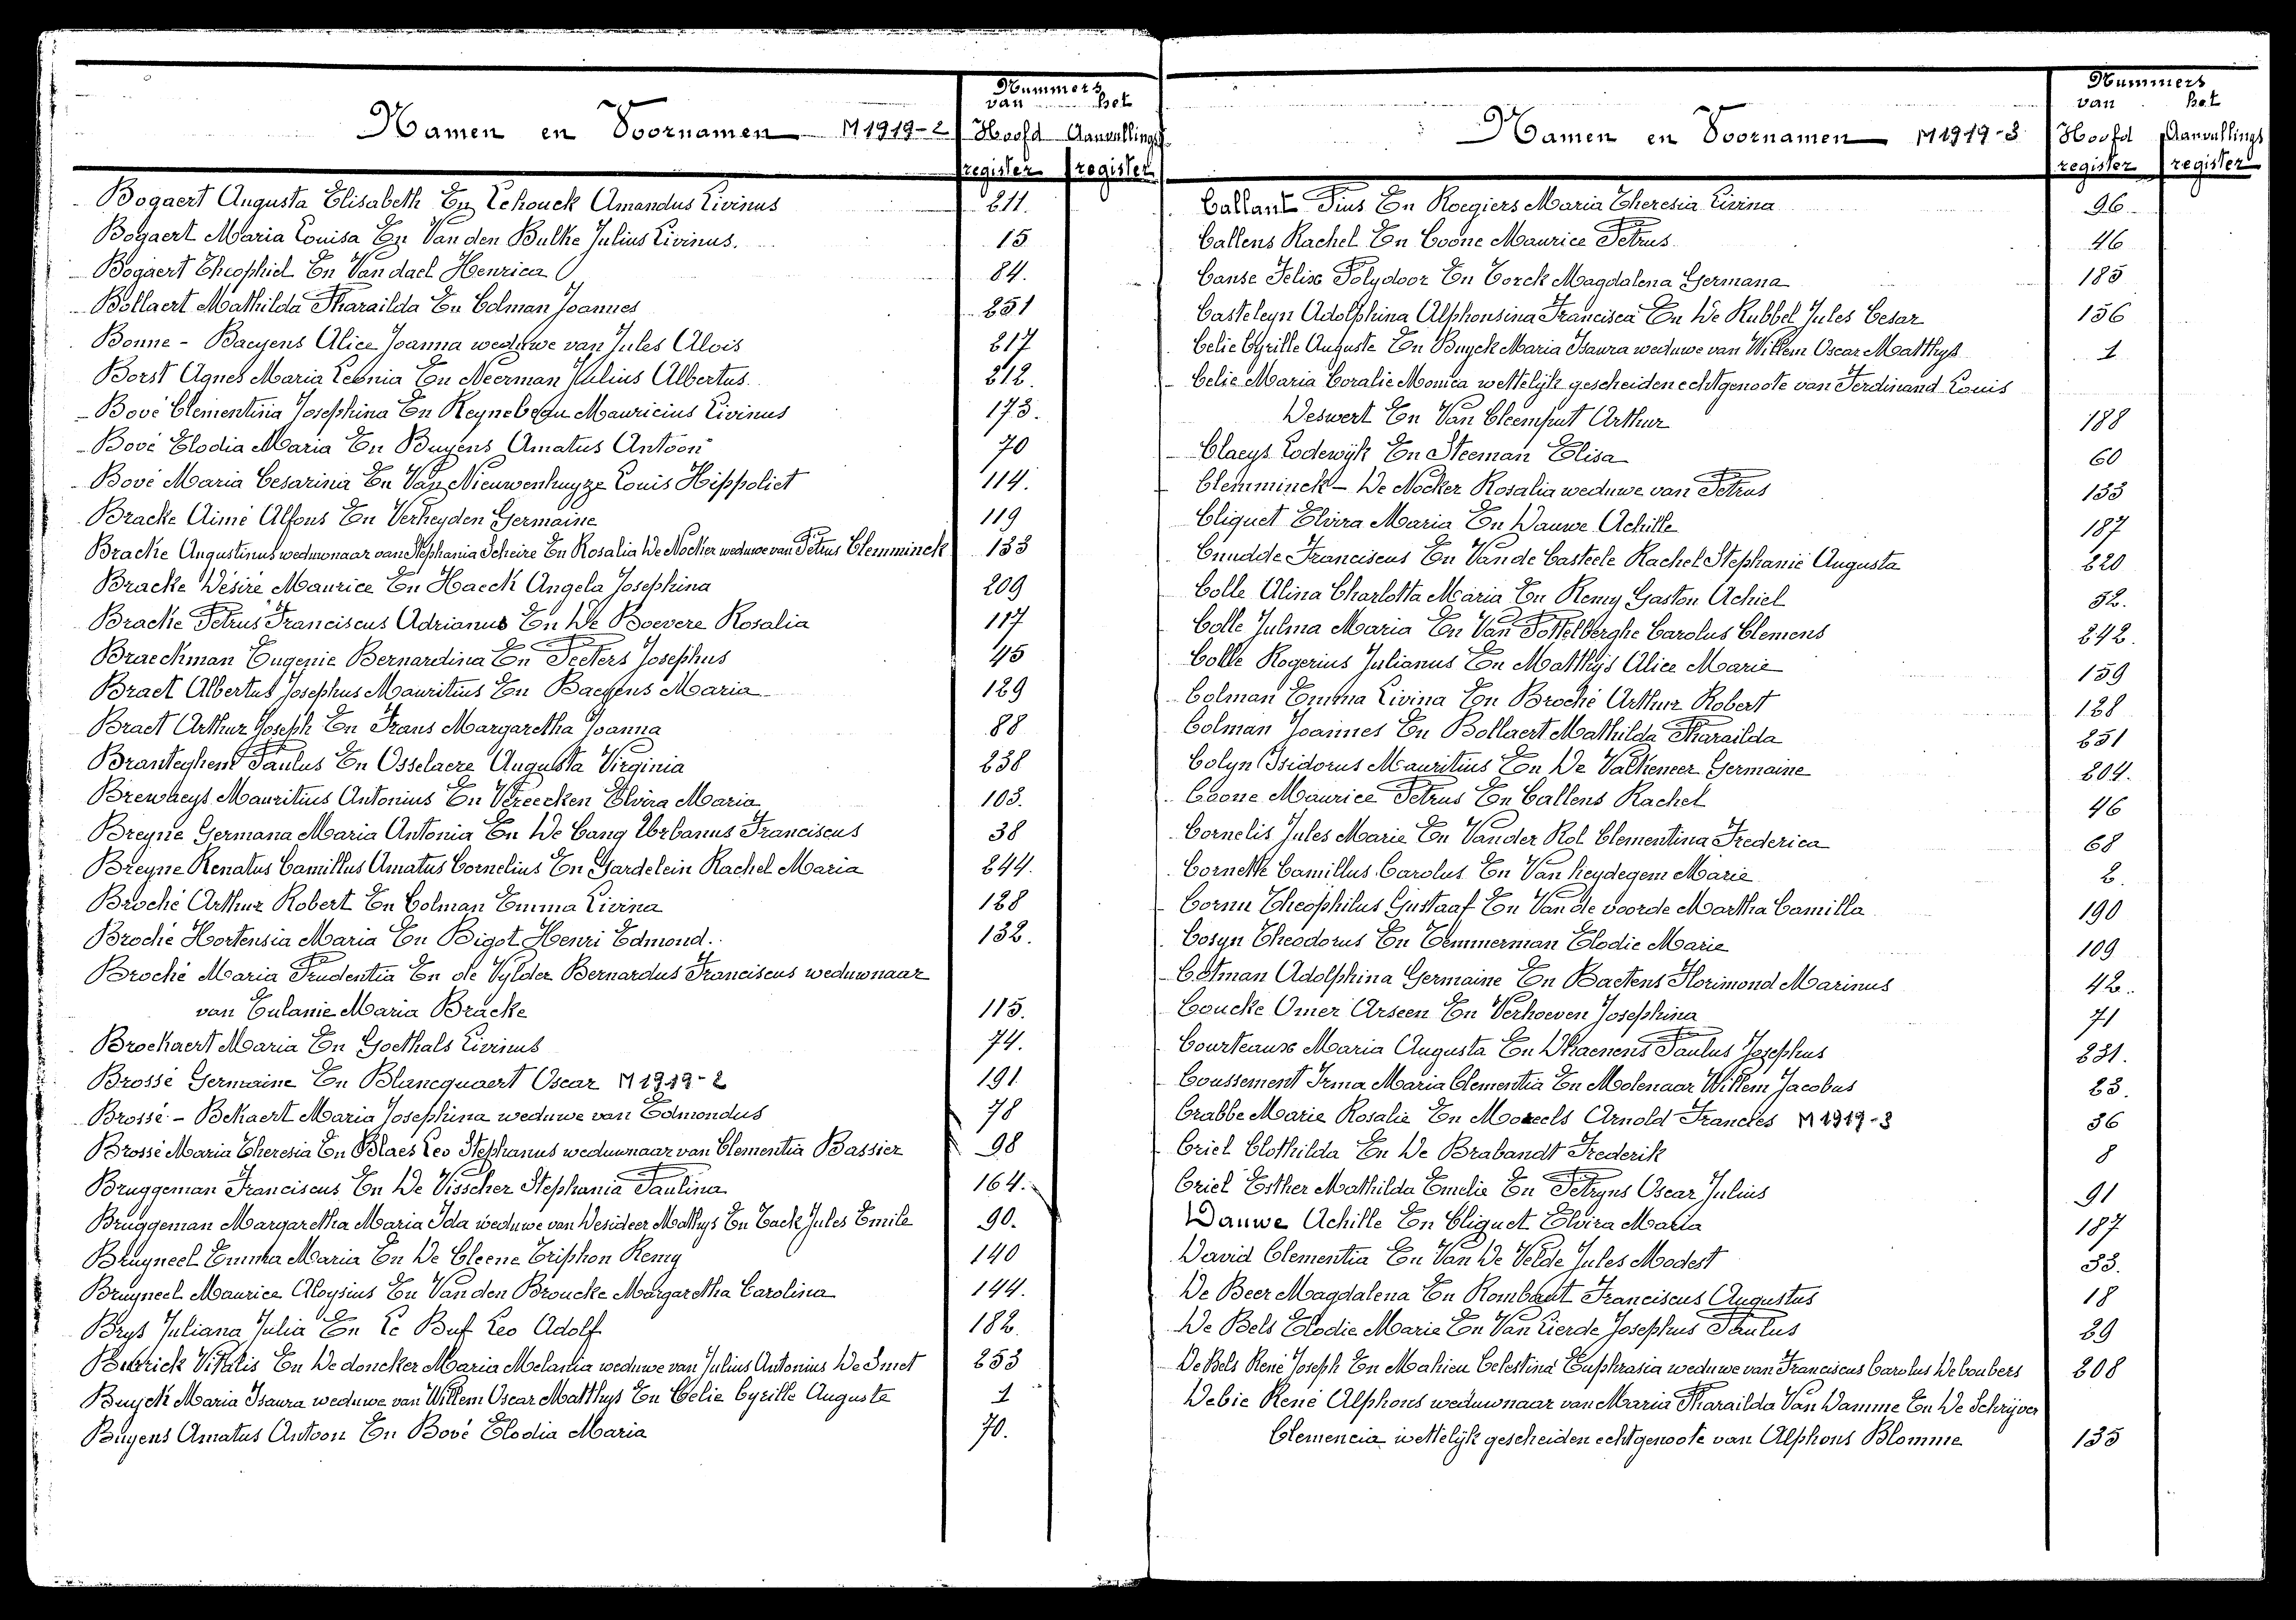 Nummers
van het
Namen en Voornamen M1919-2 Hoofd Aanvullings
register register
Bogaert Augusta Elisabeth En Lehouck Amandus Livinus 211.
Bogaert Maria Louisa En Van den Bulke Julius Livinus. 15
Bogaert Theophiel En Van dael Henrica 84.
Bollaert Mathilda Pharaïlda En Colman Joannes 251
Bonne - Baeyens Alice Joanna weduwe van Jules Alois 217
Borst Agnes Maria Leonia En Neerman Julius Albertus. 212.
Bové Clementina Josephina En Reynebeau Mauricius Livinus 173.
Bové Elodia Maria En Buyens Amatus Antoon 70
Bové Maria Cesarinia En Van Nieuwenhuyze Louis Hippoliet 114.
Bracke Aimé Alfons En Verheyden Germaine 119
Bracke Augustinus weduwnaar van Stephania Scheire En Rosalia De Nocker weduwe van Petrus Clemminck 133
Bracke Désiré Maurice En Haeck Angela Josephina 209
Bracke Petrus Franciscus Adrianus En De Boevere Rosalia 117
Braeckman Eugenie Bernardina En Peeters Josephus 45
Braet Albertus Josephus Mauritius En Baeyens Maria 129
Braet Arthur Joseph En Frans Margaretha Joanna 88
Branteghem Paulus En Osselaere Augusta Virginia 238
Brewaeys Mauritius Antonius En Vereecken Elvira Maria 103.
Breyne Germana Maria Antonia En De Cang Urbanus Franciscus 38
Breyne Renatus Camillus Amatus Cornelius En Gardelein Rachel Maria 244.
Broché Arthur Robert En Colman Emma Livina 128
Broché Hortensia Maria En Bigot Henri Edmond. 132.
Broché Maria Prudentia En de Vylder Bernardus Franciscus weduwnaar
van Eulanie Maria Bracke 115.
Brockaert Maria En Goethals Livinus 74.
Brossé Germaine En Blancquaert Oscar M1919-2 191
Brossé - Bekaert Maria Josephina weduwe van Edmondus 78
Brossé Maria Theresia En Blaes Leo Stephanus weduwnaar van Clementia Bassier 98
Bruggeman Franciscus En De Visscher Stephania Paulina 164.
Bruggeman Margaretha Maria Ida weduwe van Desideer Mathys En Tack Jules Emile 90.
Bruyneel Emma Maria En De Cleene Triphon Remy 140
Bruyneel Maurice Aloysius En Van den Broucke Margaretha Carolina 144.
Brys Juliana Julia En Le Buf Leo Adolf 182
Vitalis En De doncker Maria Melania weduwe van Julius Antonius De Smet 253
Buyck Maria Isaura weduwe van Willem Oscar Matthys En Celie Cyrille Auguste 1
Buyens Amatus Antoon En Bové Elodia Maria 70.
Nummers
van het
Namen en Voornamen M1919-3 Hoofd Aanvullings
register register
Callant Pius En Roegiers Maria Theresia Livina 96.
Callens Rachel En Coone Maurice Petrus 46
Canse Felix Polydoor En Torck Magdalena Germana 185
Casteleyn Adolphina Alphonsina Francisca En De Rubbel Jules Cesar 156
Celie Cyrille Auguste En Buyck Maria Isaura weduwe van Willem Oscar Matthys 1
Celie Maria Coralie Monica wettelijk gescheiden echtgenoote van Ferdinand Louis
Deswert En Van Cleemput Arthur 188
Claeys Lodewijk En Steeman Elisa 60
Clemminck - De Nocker Rosalia weduwe van Petrus 133
Cliquet Elvira Maria En Dauwe Achille 187
Cnudde Franciscus En Van de Casteele Rachel Stephanie Augusta 220
Colle Alina Charlotta Maria En Remy Gaston Achiel 52.
Colle Julma Maria En Van Pottelberghe Carolus Clemens 242.
Colle Rogerius Julianus En Matthijs Alice Marie 159
Colman Emma Livina En Broché Arthur Robert 128
Colman Joannes En Bollaert Mathilda Pharaïlda 251
Colyn Isidorus Mauritius En De Valkeneer Germaine 204.
Coone Maurice Petrus En Callens Rachel 46
Cornelis Jules Marie En Van der Rol Clementina Frederica 68
Cornette Camillus Carolus En Van heydegem Marie 2.
Cornu Theophilus Gustaaf En Van de voorde Martha Camilla 190
Cosyn Theodorus En Temmerman Elodie Marie 109
Cotman Adolphina Germaine En Baetens Florimond Marinus 42.
Coucke Omer Arseen En Verhoeven Josephina 71
Courteaux Maria Augusta En D'haenens Paulus Josephus 231.
Coussement Irma Maria Clementia En Molenaar Willem Jacobus 23.
Crabbe Marie Rosalie En Moreels Arnold Francies M1919-3 36
Criel Clothilda En De Brabandt Frederik 8
Criel Esther Mathilda Emelie En Petryns Oscar Julius 91
Dauwe Achille En Cliquet Elvira Maria 187
David Clementia En Van De Velde Jules Modest 33.
De Beer Magdalena En Rombaut Franciscus Augustus 18
De Bels Elodie Marie En Van Lierde Josephus Paulus 29
De Bels René Joseph En Mahieu Celestina Euphrasia weduwe van Franciscus Carolus De Coubers 208
Debie René Alphons weduwnaar van Maria Pharaïlda Van Damme En De Schrijver
Clemencia wettelijk gescheiden echtgenoote van Alphons Blomme 135